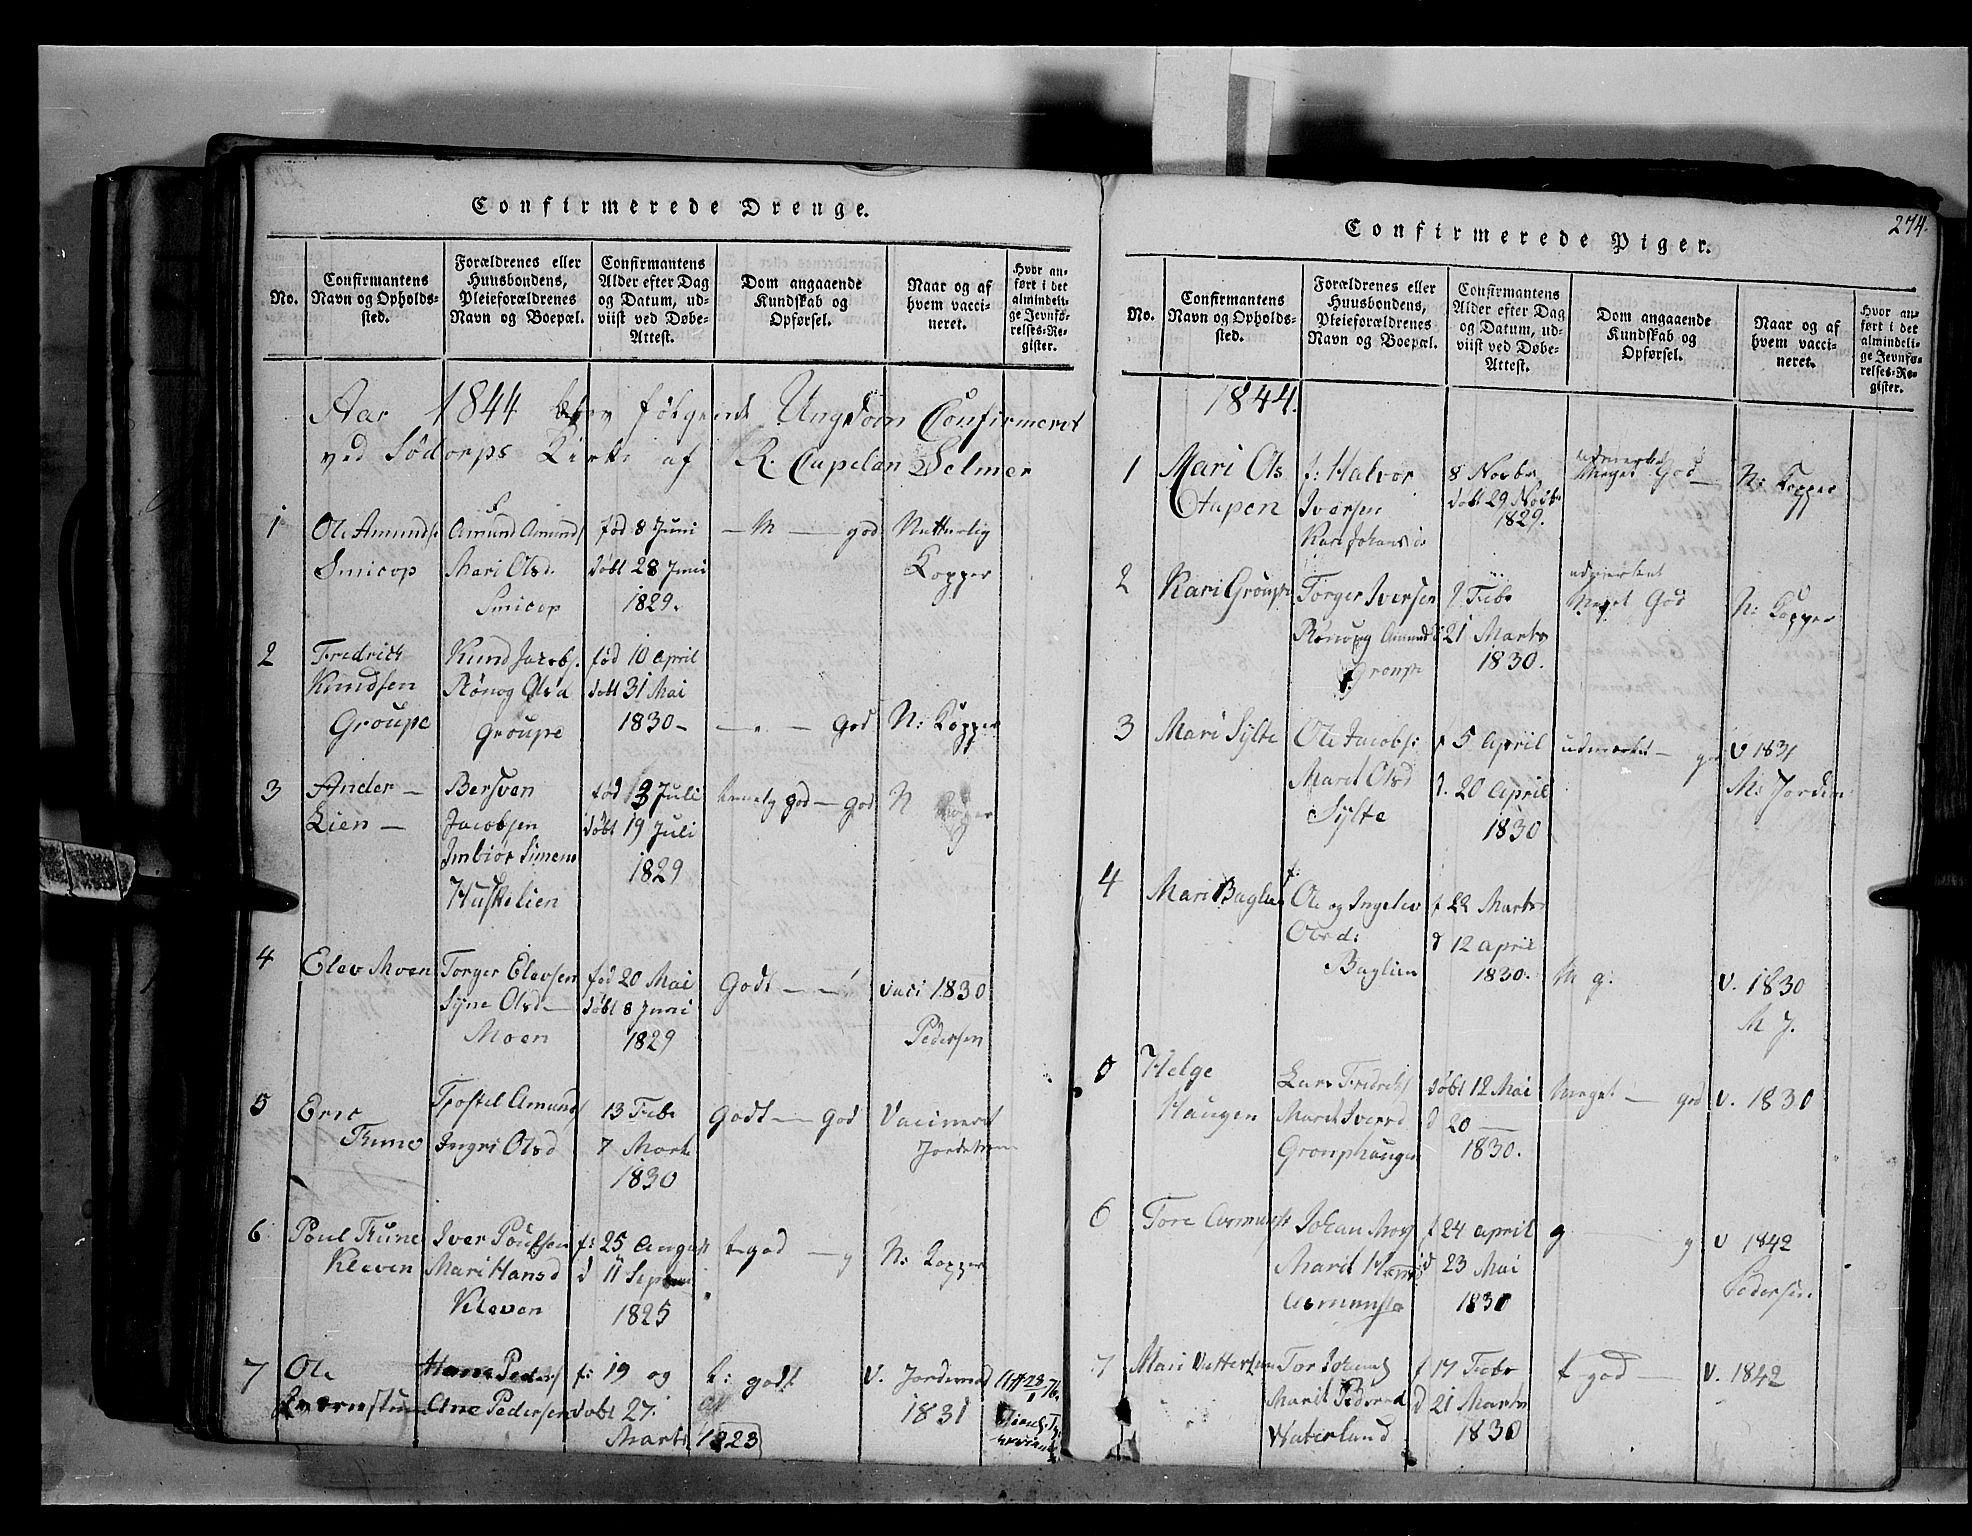 Confirmerede Drenge.
No.
Confirmantens
Navn og Opholds-
sted.
Forældrenes eller
Huusbondens,
Pleieforældrenes
Navn og Boepæl.
Confirmantens
Alder efter Dag
og Datum, ud-
viist ved Døbe-
Attest.
Dom angaaende
Kundskab og
Opførsel.
Naar og af
hvem vacci-
neret.
Hvor an-
ført i det
almindeli-
ge Jevnfø-
relses-Re-
gister.
Aar 1844 blev følgende Ungdom Confirmeret
ved Södorps Kirke af R. Capelan Selmer
1
Ole Amunds
Smicop
Amund Amunds
Mari Olsd.
Smicop
fød 8 Juni
døbt 28 Juni
1829.
— M — god
Naturlig
Kopper
2
Fredrick
Knudsen
Groupe
Knud Jacobs.
Rönog Olsd
Groupe
fød 10 april
døbt 31 Mai
1830 –
— „ — god
N: Kopper
3
Ander —
Lien —
Bersven
Jacobsen
Imbiör Simens
Huskelien
fød 13 Juli
døbt 19 Juli
1829
temelig god — god
N Kopper
4
Elev Moen
Torger Elevsen
Syne Olsd —
Moen
fød 20 Mai
døbt 8 Juni
1829
Godt — —
vaci 1830
Pedersen
5
Eric
Trune
Trostel Amunds
Ingri Olsd
13 Febr
7 Marts
1830
Godt — god
Vacineret
6
Poul Trune
Kleven
Iver Poulsen
Mari Hansd
Kleven
f: 25 August
d 11 Septem
1825
t god — g
N: Kopper
7
Ole
Hans Peders
Ane Pedersen
f: 19 og
døbt 27.
Marts 1823
t: godt
V.
1831
Confirmerede Piger.
274.
No.
Confirmantens
Navn og Opholds-
sted.
Forældrenes eller
Huusbondens,
Pleieforældrenes
Navn og Boepæl.
Confirmantens
Alder efter Dag
og Datum, ud-
viist ved Døbe-
Attest.
Dom angaaende
Kundskab og
Opførsel.
Naar og af
hvem vacci-
neret.
Hvor an-
ført i det
almindeli-
ge Jevnfø-
relses-Re-
gister.
1844.
1
Mari Ols
f: Halvor
Iversen
Kari
8 Novbr
døbt 29 Novbr
1829.
udmerket
Meget God —
N: Kopper
2
Kari Groupe
Torger Iversen
Rönog Amunds
Groupe
7 Febr
21 Marts
1830.
udmerket
Meget God
N: Kopper
3
Mari Sylte
Ole Jacobs:
Marit Olsd
Sylte
f 5 April
d. 20 April
1830
udmerket —
V 1831
4
Mari Baglien
f:
Ole og Ingelev
Olsd:
Baglien
f 22 Marts
d 12 april
1830.
M g.
V. 1830
M J.
5
Helge
Haugen
Lars Fredriks
Marit Iversd
Grouphaugen
døbt 12 Mai
d 20 —
1830.
Meget — god
V. 1830
6
Tore
Johan
Marit
f 24 april
d 23 Mai
1830
g — g
V 1842
Pedersen
7
Mari
Tor Johans
Marit Pedersd
Waterland
f 17 Febr
d 21 Marts
1830
t god —
V. 1842